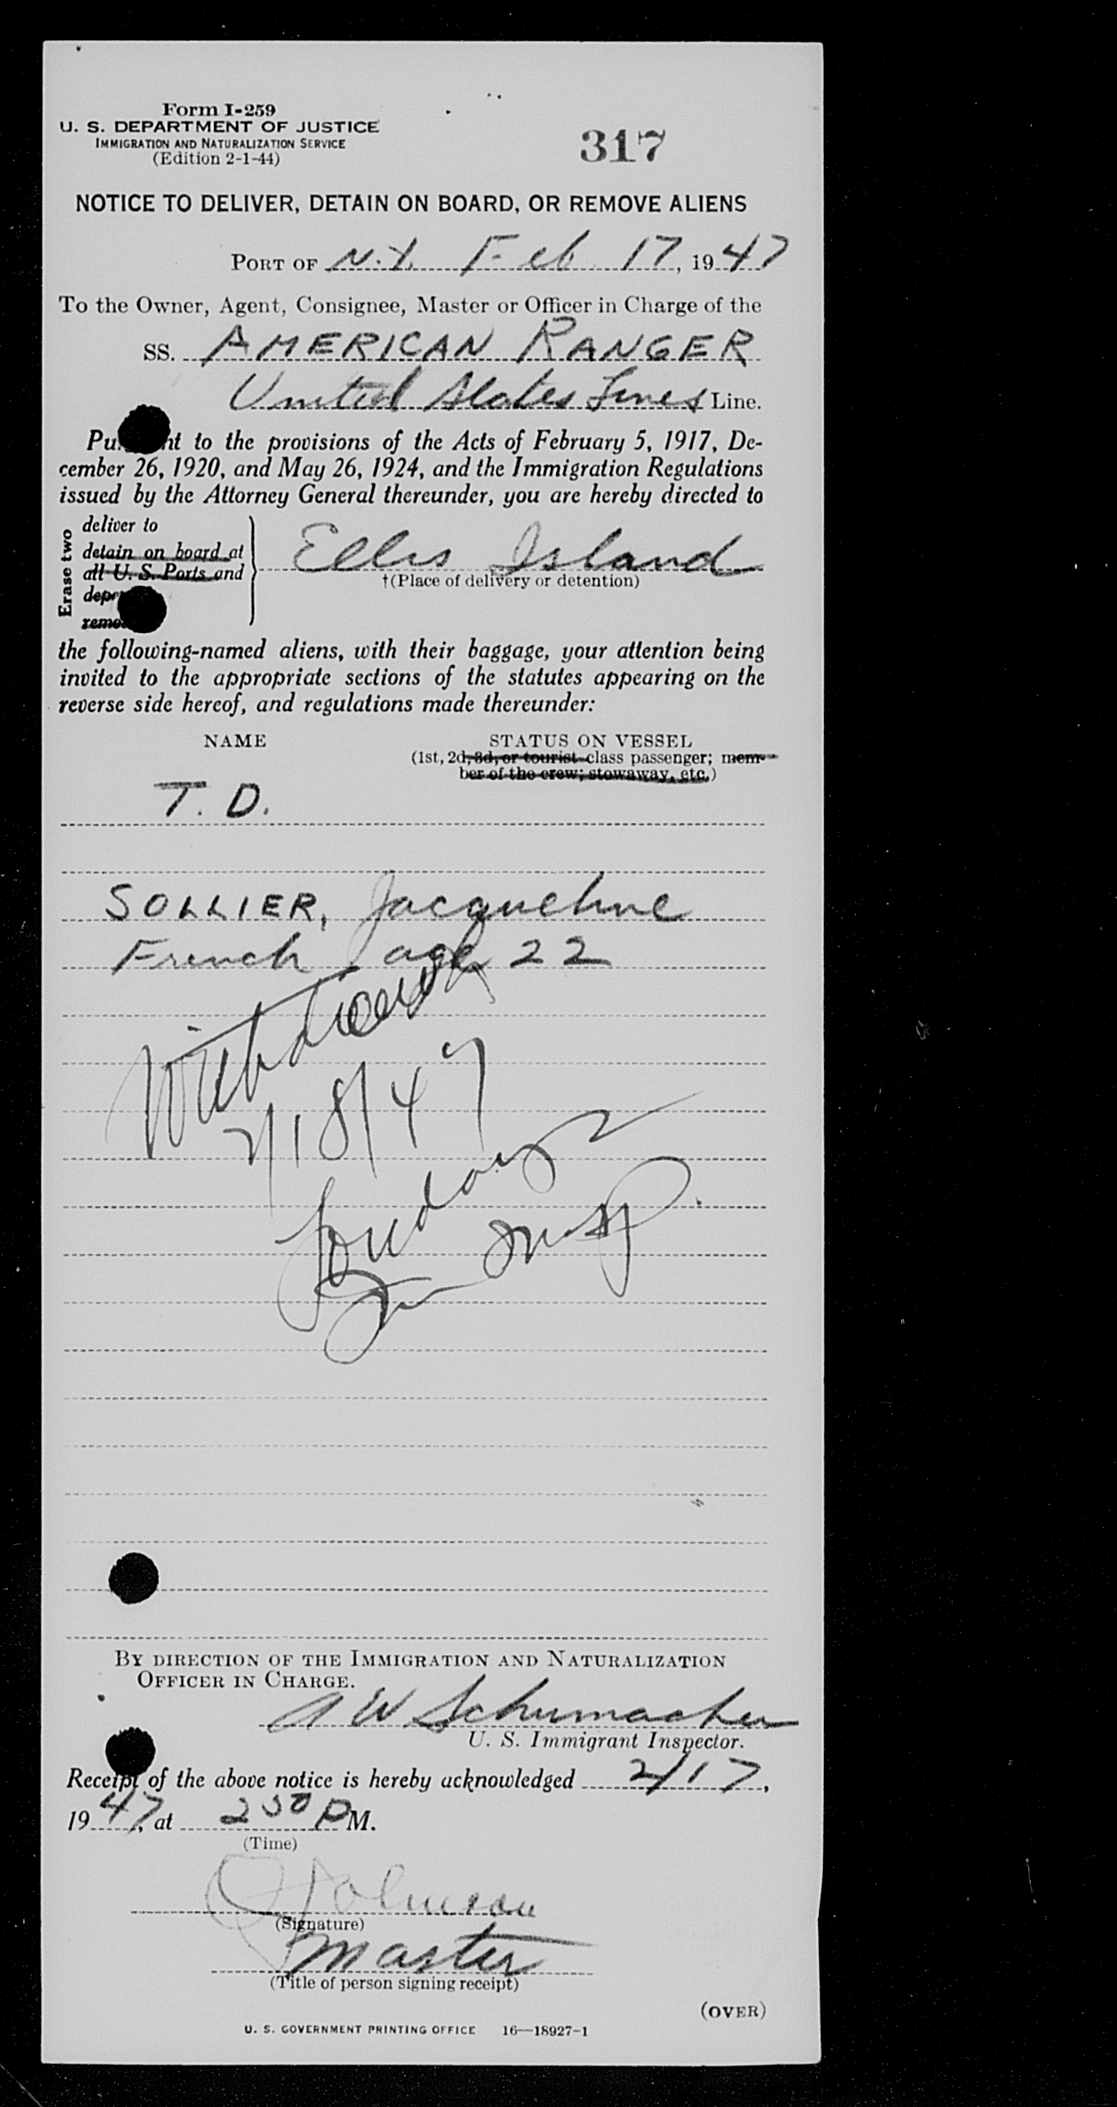 Form I-259
U. S. DEPARTMENT OF JUSTICE
IMMIGRATION AND NATURALIZATION SERVICE
(Edition 2-1-44)
317
NOTICE TO DELIVER, DETAIN ON BOARD, OR REMOVE ALIENS
PORT OF N.Y. Feb 17, 1947
To the Owner, Agent, Consignee, Master or Officer in Charge of the
SS. AMERICAN RANGER
United States Lines Line.
to the provisions of the Acts of February 5, 1917, De-
cember 26, 1920, and May 26, 1924, and the Immigration Regulations
issued by the Attorney General thereunder, you are hereby directed to
Erase two
deliver to
detain on board at
all U. S. Ports and
Ellis Island
†(Place of delivery or detention)
the following-named aliens, with their baggage, your attention being
invited to the appropriate sections of the statutes appearing on the
reverse side hereof, and regulations made thereunder:
NAME STATUS ON VESSEL
(1st, 2d, 3d, or tourist class passenger; mem-
ber of the crew; stowaway, etc.)
T. D.
SOLLIER, Jacqueline
French age 22
Withdrawn
2/18/47
Insp.
BY DIRECTION OF THE IMMIGRATION AND NATURALIZATION
OFFICER IN CHARGE.
A W Schumacher
U. S. Immigrant Inspector.
Receipt of the above notice is hereby acknowledged 2/17,
1947, at 2 50 P M.
(Time)
(Signature)
Master
(Title of person signing receipt)
(OVER)
U. S. GOVERNMENT PRINTING OFFICE 16—18927-1